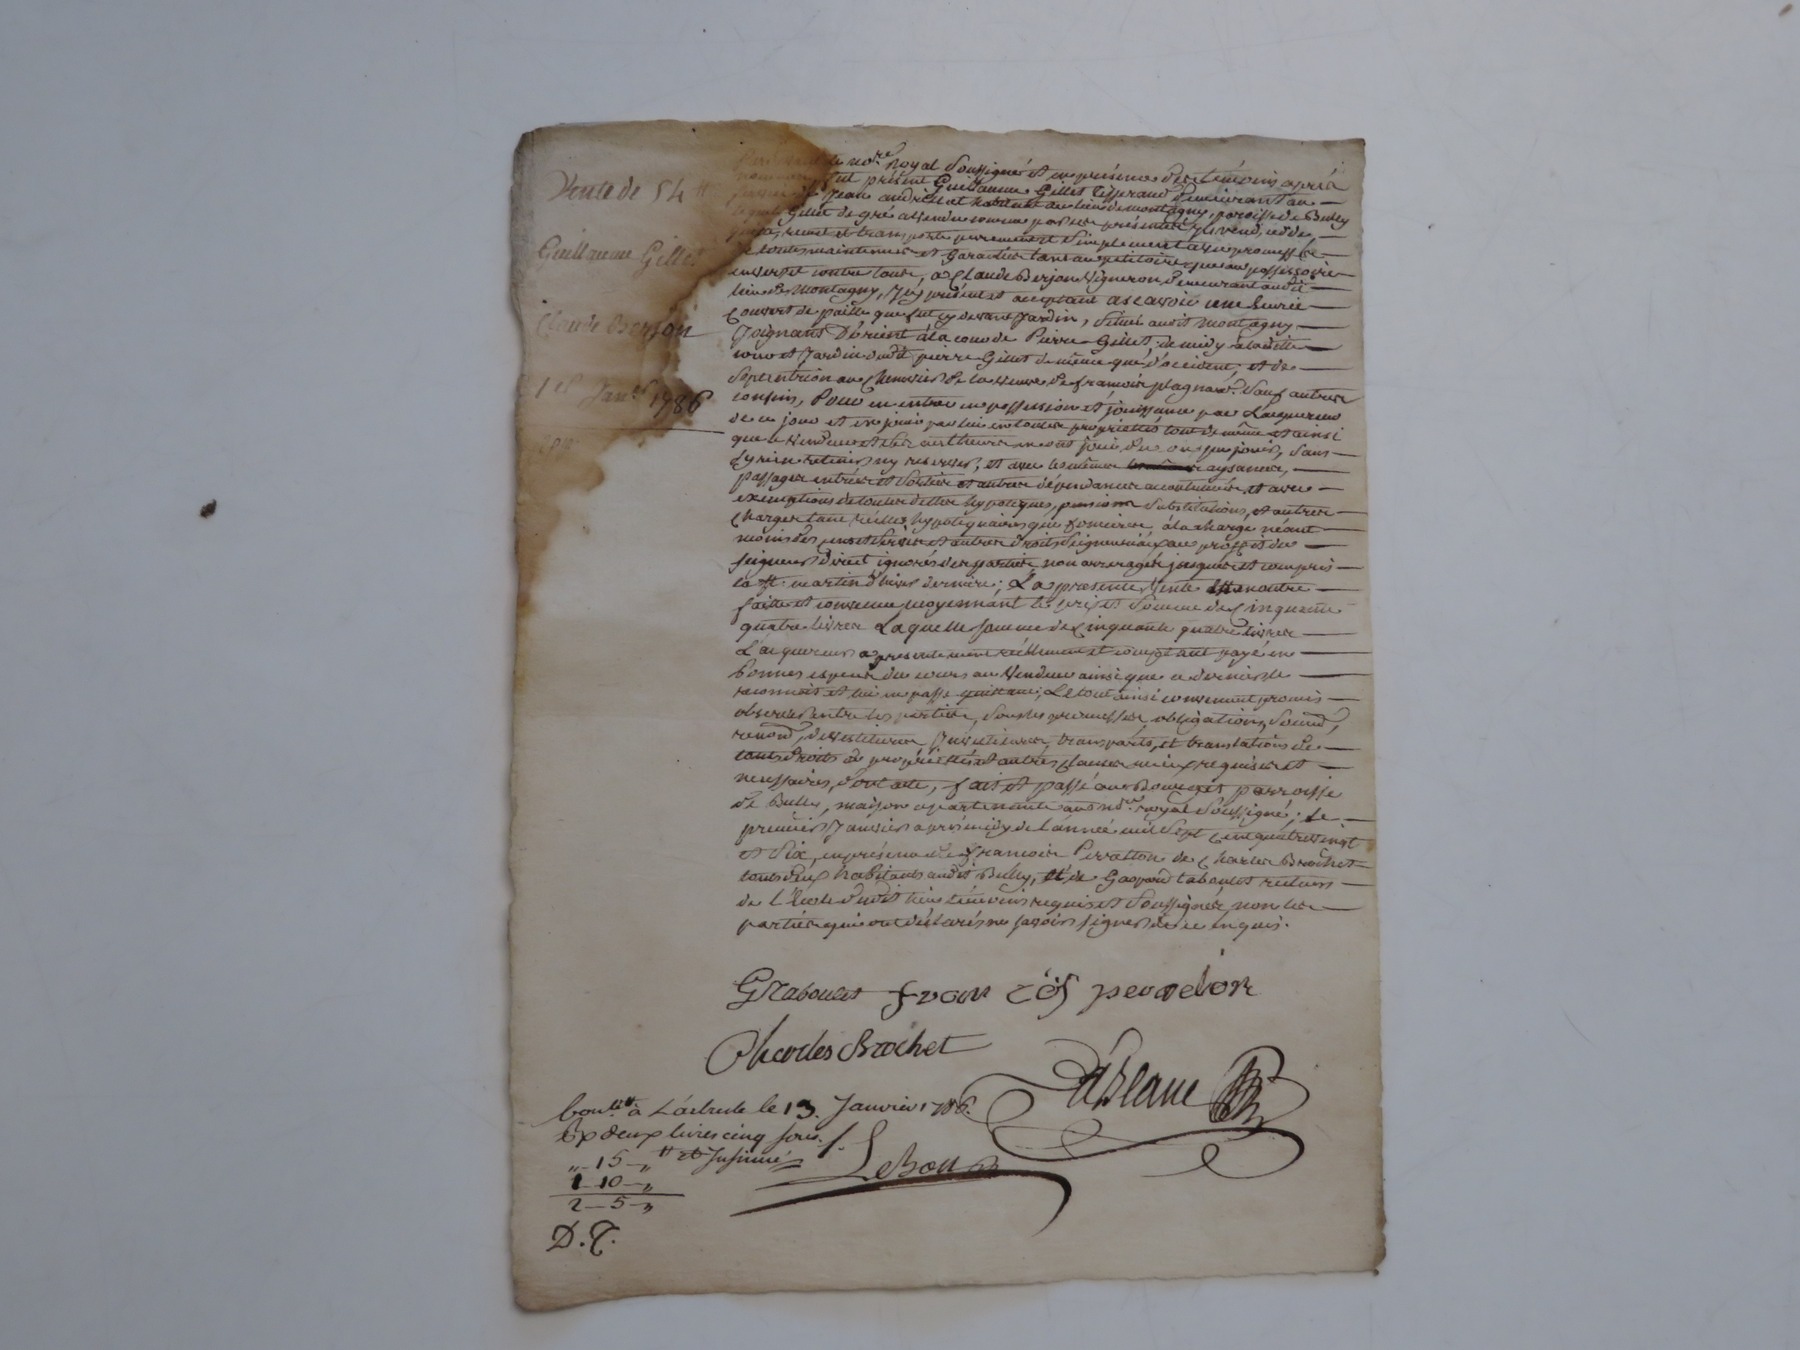 Vente de 54 ₶
Guillaume Gillet
Claude Berjon
1er Janr 1786
nore Royal soussigné et en presence des témoins après
fut présent Guillaume Gillet Tisserand demeurant au
Jean andré et habitant au lieu de montagny, paroisse de Bully
Gillet de gré a vendu comme par ces présentes il vend, cedde
remet et transporte purement et simplement avec promesse
de toutes maintenir et garantir tant au petitoire qu'au possessoire
envers et contre tous, a Claude Berjon Vigneron demeurant audit
lieu de Montagny, icy présent et acceptant a scavoir une Ecurie
Couvert de paille que fut cy devant Jardin, situé audit Montagny
Joignant d'orient à la cour de Pierre Gillet, de midy à laditte
cour et Jardin dudt pierre Gillet de même que d'occident, et de
septentrion au chenevier de la veuve de francois plagnard. Sauf autres
confins, Pour en entrer en possession et jouissance par l'acquereur
de ce jour et en jouir par lui en toutes propriettés tout de même et ainsi
que le vendeur et ses autheurs en ont joui du ou pu jouir, sans
s'y rien retenir ny reserver, et avec les mêmes aysances,
passages entrées et sorties et autres dépendances accoutumées et avec
exemptions de toutes dettes hypoteques, pensions substitutions, et autres
charges tant réelles hypotequaires que foncieres à la charge néant
moins des cens et servis et autres droits seigneuriaux au proffit du
seigneur direct ignorés des parties non arreragés jusques et compris
la St. martin d'hiver derniere; La presente Vente en outre
faitte et convenue moyennant le prix et somme de Cinquante
quatre livres Laquelle somme de cinquante quatre livres
L'acquereur a presentement réellement et comptant payé en
bonnes especes du cours au Vendeur ainsi que ce dernier le
reconnoit et lui en passe quittance; Le tout ainsi convenu et promis
observer entre les parties, sous les promesses obligations, soumd,
renond, devestitures Investitures, transports, et translations de
tous droits de propriettés et autres clauses mieux requises et
necessaires, dont acte, fait et passé au Bourg et parroisse
de Bully, maison apartenante au nore royal soussigné; Le
premier Janvier après midy de l'année mil sept cent quatrevingt
et six, en présence de francois Perratton de Charles Brochet
tous deux habitants audit Bully, et de Gaspard taboulet recteur
de l'Ecole dudit lieu témoins requis et soussignés, non les
parties qui ont déclarés ne savoir signer de ce enquis.
G Taboulet fran çois peradon
Charles Brochet
deBlanc
Conlé à L'arbresle le 13. Janvier 1786.
Rx deux livres cinq sous. f.
" 15 " ₶ et Insinué
1 10 "
2 5 "
LeBon
D. T.